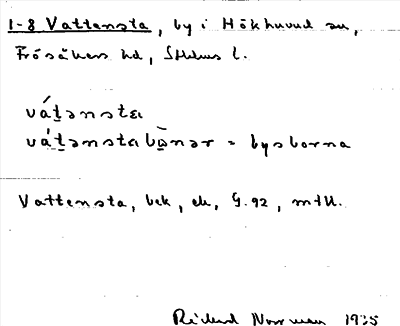 1-8 Vattensta, by i Hökhuvud sn,
Frösåkers hd, Sthlms l.
vát̠ənsta
vát̠ənstabo̠nər = bysborna
Vattensta, bek, ek, G.92, mtl.
Rickard Norrman 1935